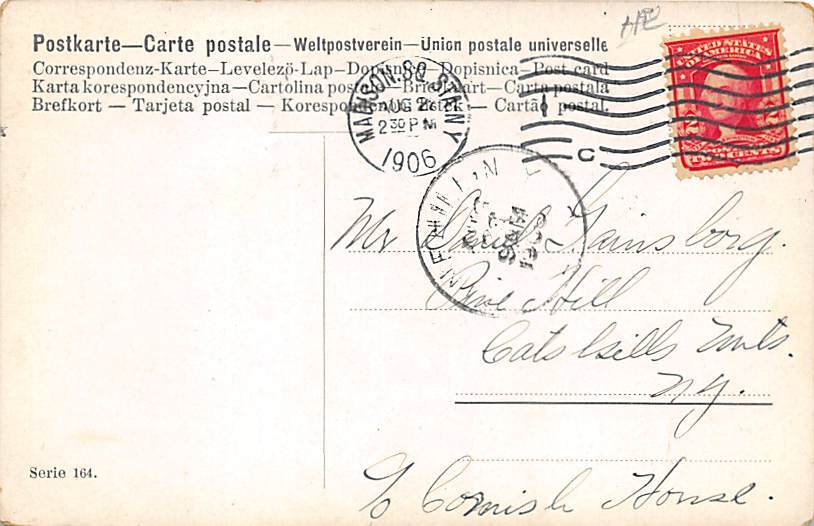 HE
Postkarte—Carte postale—Weltpostverein—Union postale universelle
Correspondenz-Karte—Levelező-Lap—Dopisnice—Dopisnica—Post card
Karta korespondencyjna—Cartolina postale—Briefkaart—Carta postala
Brefkort — Tarjeta postal — — Cartão postal.
MADISON SQ. STA. NY
AUG 2
2 30 PM
1906
C
UNITED STATES
OF AMERICA
2 2
TWO CENTS
Mr Gainsborg.
Pine Hill
Catskills Mnts.
NY.
Serie 164.
c/o Cornish House.